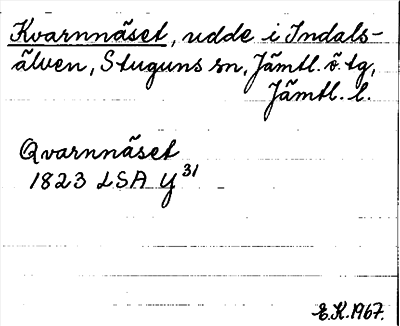 Kvarnnäset, udde i Indals-
älven, Stuguns sn, Jämtl. ö. tg,
Jämtl. l.
Qvarnnäset
1823 LSA Y³¹
E.K. 1967.